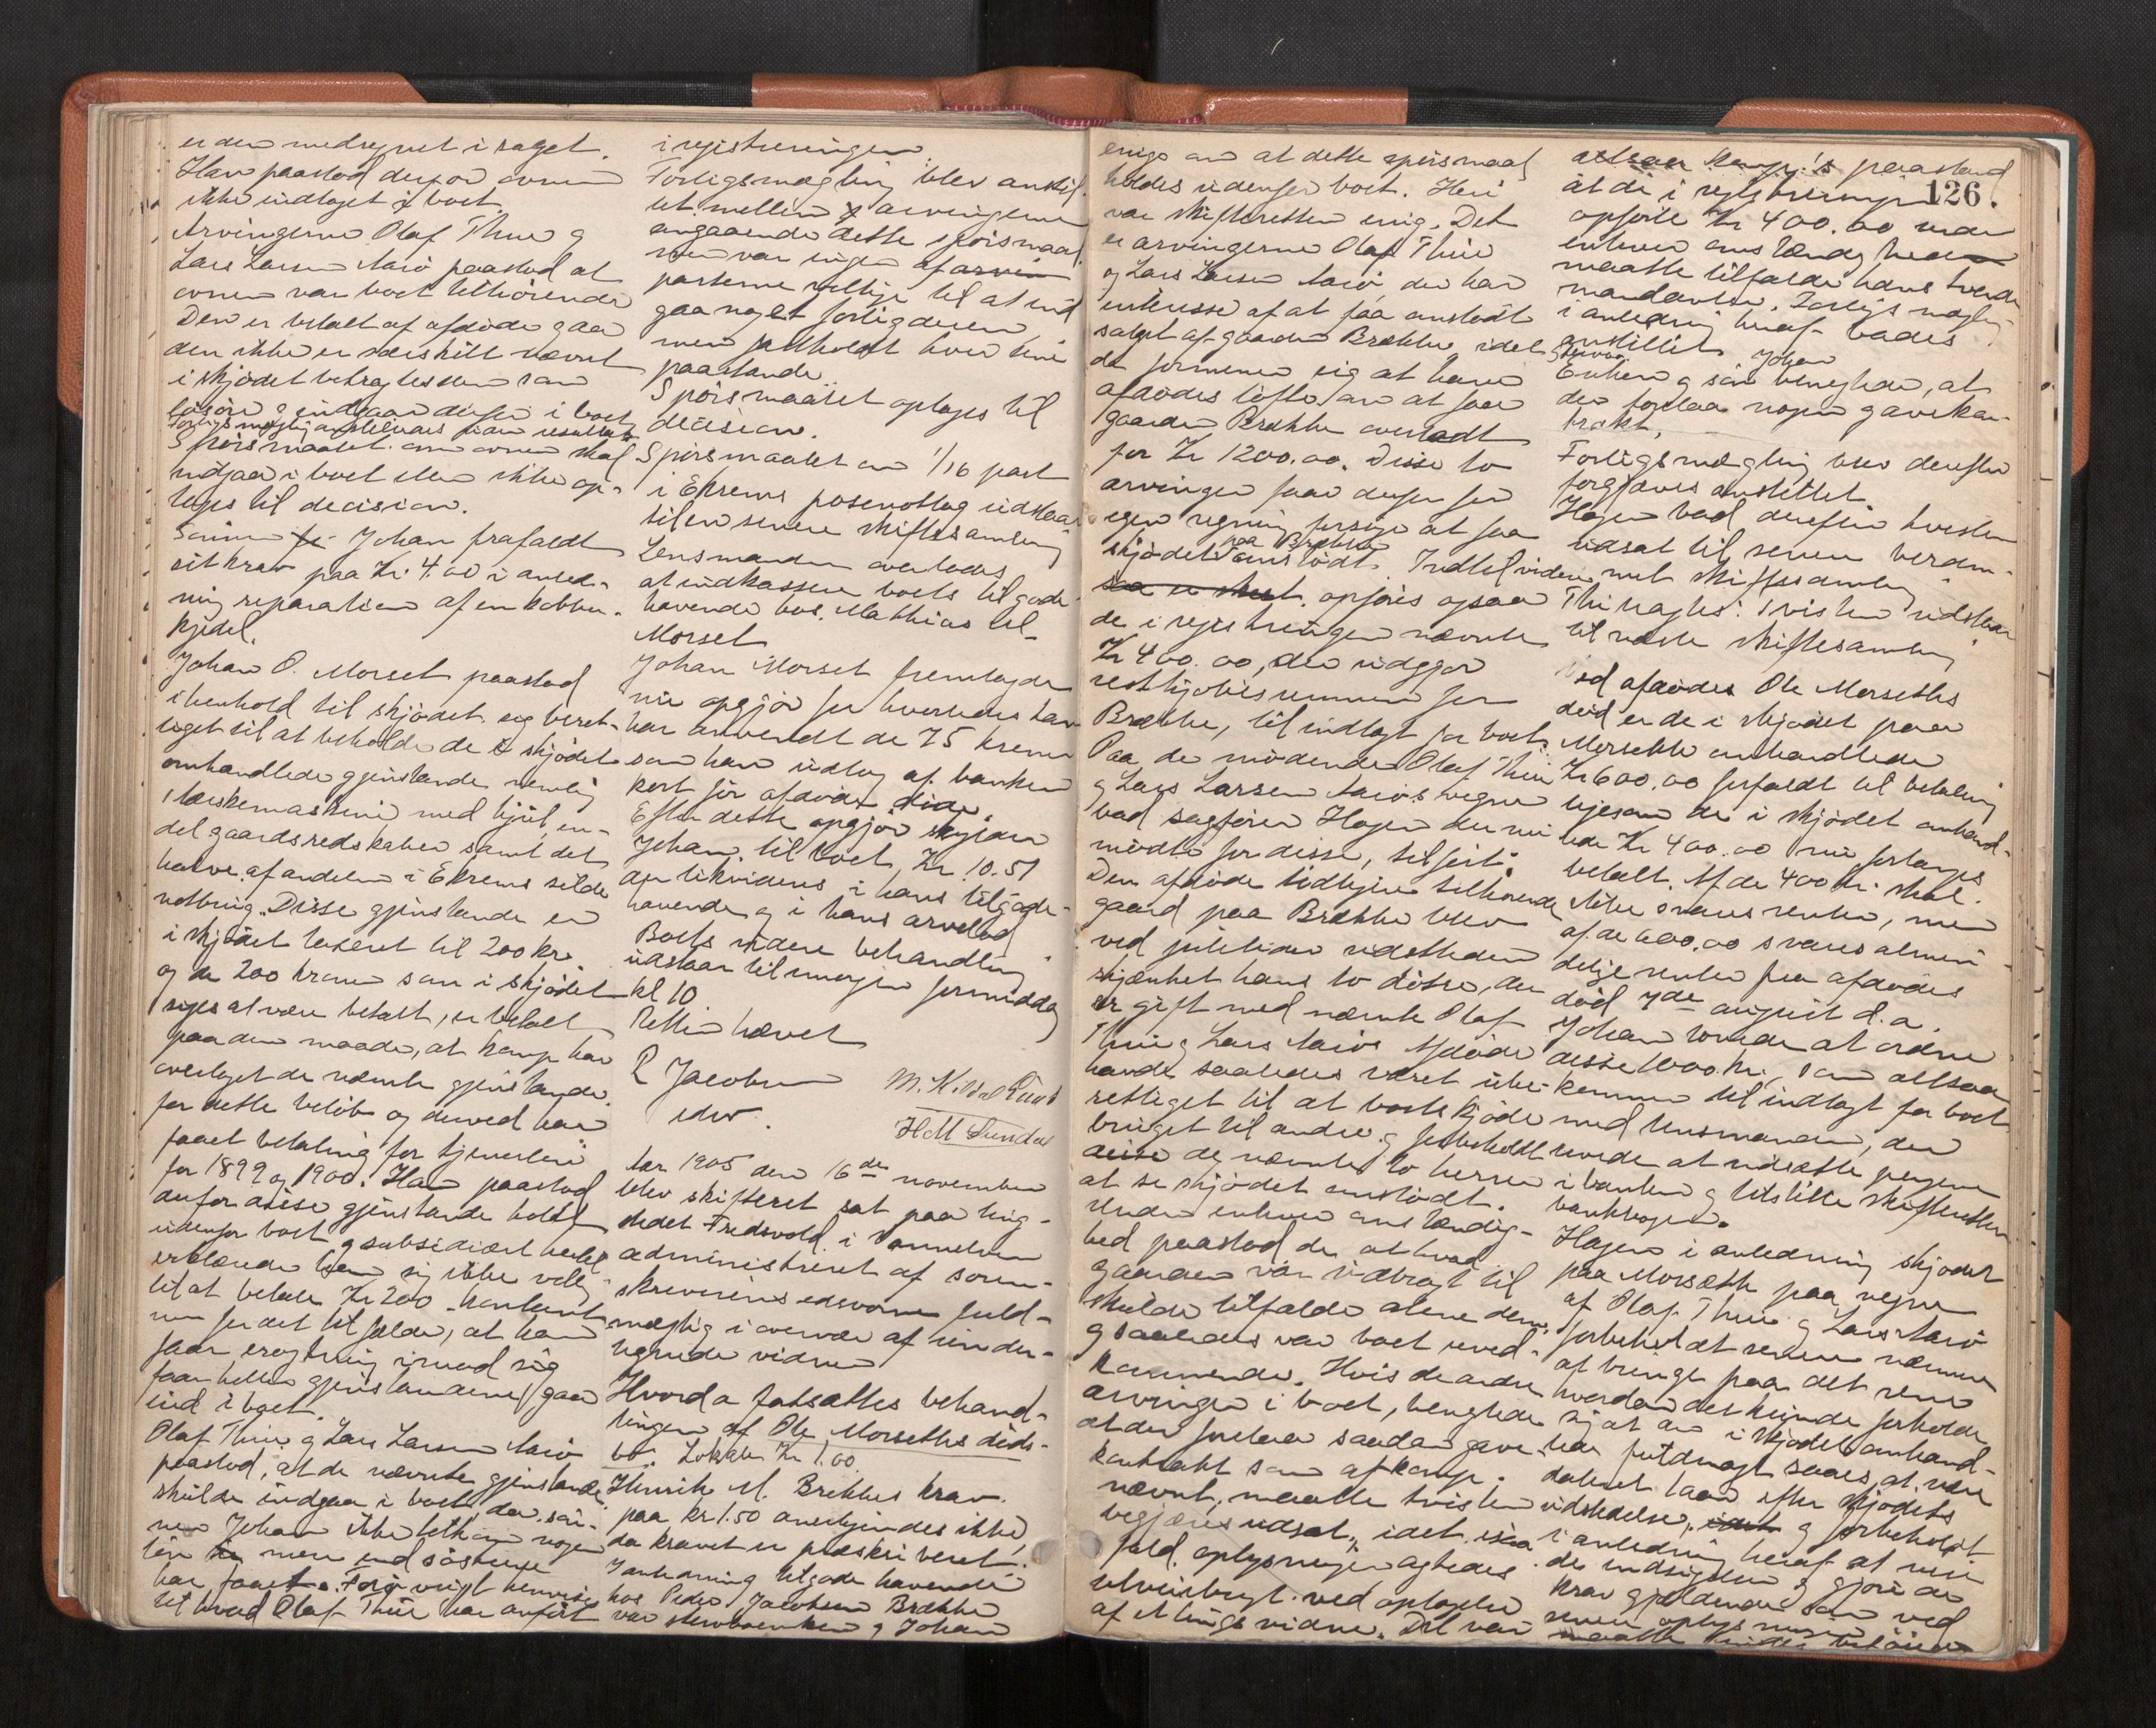 er den medregnet i salget.
Han paastod derfor ovnen
ikke indtaget i boet.
Arvingerne Olaf Thue og
Lars Larsen Aarö paastod at
ovnen var boet tilhörende
Den er betalt af afdöde og da
den ikke er særskilt nævnt
i skjödet betragtes den som
lösöre og indgaar derfor i boet
Forligsmægling anstilledes uden resultat.
Spörsmaalet om ovnen skal
indgaa i boet eller ikke op-
tages til decision.
Sönnen Johan frafaldt
sit krav paa Kr. 4.00 i anled-
ning reparation af en kobber-
kjedel.
Johan O. Morset paastod
i henhold til skjödet sig beret-
tiget til at beholde de i skjödet
omhandlede gjenstande nemlig
1 tærskemaskine med hjul, en
del gaardsredskaber samt det
halve af andelen i Ekrems silde
notbrug. Disse gjenstande er
i skjödet taxeret til 200 kr.
og de 200 kroner som i skjödet
siges at være betalt, er betalt
paa den maade, at han har
overtaget de nævnte gjenstande
for dette belöb og derved har
faaet betaling for tjenerlön
for 1899 og 1900. Han paastod
derfor disse gjenstande holdt
udenfor boet og subsidiært
erklærede han sig ikke villig
til at betale Kr 200 kontant
uden for det tilfælde, at han
faar erstatning imod sig
faar heller gjenstandene gaa
ind i boet.
Olaf Thue og Lars Larsen Aarö
paastod, at de nævnte gjenstande
skulde indgaa i boet da sön-
nen Johan ikke tilkom nogen
lön mere end söstrene
har faaet. Forövrigt henvises
til hvad Olaf Thue har anfört
i registreringen
Forligsmægling blev anstil-
let mellem arvingerne
angaaende dette spörsmaal
men var ingen af arvin
parterne villige til at ind
gaa noget forlig derom
men fastholdt hver sine
paastande.
Spörsmaalet optages til
decision.
Spörsmaalet om 1/16 part
i Ekrems posenotlag udstaar
til en senere skiftesamling
Lensmanden overlodes
at indkassere boets tilgode-
havende hos Mathias El-
Morset
Johan Morset fremlagde
nu opgjör for hvorledes han
har anvendt de 75 kroner
som han udtog af banken
kort för afdödes död.
Efter dette opgjör skylder
Johan til boet Kr. 10.51
der likvideres i hans tilgode-
havende og i hans arvelod
Boets videre behandling
udstaar til imorgen formiddag
kl 10
Retten hævet
R Jacobsen
edsv.
H M Sundal
Aar 1905 den 16de november
blev skifteret sat paa ting-
stedet Fredsvold i Vannelven
administreret af soren-
skriverens edsvorne fuld-
mægtig i overvær af under-
tegnede vidner
Hvorda fatsattes behand-
lingen af Ole Morseths döds-
bo. Lokale Kr 1.00
Henrik M. Brekkes krav
paa kr 1.50 anerkjendes ikke,
da kravet er præskriberet.
I anledning tilgode havende
hos Peder Jacobsen Brække
var sterboenken og Johan
126.
enige om at dette spörsmaal
holdes udenfor boet. Heri
var skifteretten enig. Det
er arvingerne Olaf Thue
og Lars Larsen Aarö der har
interesse af at faa omstödt
salget af gaarden Brække idet
de formener sig at have
afdödes löfte om at faa
gaarden Brække overladt
for Kr 1200.00. Disse to
arvinger faar derfor for
egen regning forsöge at faa
skjödet paa Brække omstödt. Indtil videre
saa er skeet opföres ogsaa
de i registreringen nævnte
Kr 400.00, der udgjör
restkjöbesummen for
Brække, til indtægt for boet.
Paa de mödende Olaf Thue
og Lars Larsen Aarös vegne
bad sagförer Hagen der nu
mödte for disse, tilfört:
Den afdöde tidligere tilhörende
gaard paa Brække blev
ved juletider udstedelsen
skjænket hans to dötre, der
er gift med nævnte Olaf
Thue og Lars Aarö. Afdöde
havde saaledes været ube-
rettiget til at bortskjöde
bruget til andre og forbeholdt
disse de nævnte to herrer
at se skjödet omstödt.
Under enhver omstændig-
hed paastod de at hvad
gaarden var indbragt til
skulde tilfalde alene dem
og saaledes var boet uved-
kommende. Hvis de andre
arvinger i boet, benegtede
at der forelaa saadan gave-
kontrakt som af Kamp.
nævnt, maatte tvisten
begjæres udsat, idet isaa
fald oplysninger agtedes
tilveiebragt ved optagelse
af tingsvidne. Det var
altsaa Komp.'s paastand
at de i registreringen
opförte Kr 400.00 under
enhver omstændighed
maatte tilfalde hans tvende
mandanter. Forligsmægling
i anledning heraf bades
anstillet
Enken og sön Johan benegtede, at
der forelaa nogen gavekon-
trakt.
Forligsmægling blev derefter
forgjæves anstillet
Hagen bad derefter tvisten
udsat til senere beram-
met skiftesamling
Thi vagtes: Tvisten udstaar
til næste skiftesamling
Ved afdödes Ole Morseths
död er de i skjödet paa
Morsethe omhandlede
Kr 600.00 forfaldt til betaling
ligesom de i skjödet omhand-
lede Kr 400.00 nu forlanges
betalt. Af de 400 kr. skal
ikke svares renter, men
af de 600.00 svares almin-
delige renter fra afdödes
död 7de august d.a.
Johan lovede at ordne
disse 1000 kr., som altsaa
kommer til indtægt for boet
med lensmanden, der
lovede at indsætte pengene
i banken og tilstille skifteretten
bankbogen.
Hagen i anledning skjödet
paa Morsethe paa vegne
af Olaf Thue og Lars Aarö
forbeholdt at senere nævne
at bringe paa det rene
hvordan det kunde forholde
sig at de i skjödet omhand-
dateret laan efter skjödets
udstedelse, og forbeholdt
i anledning heraf at
de indsigelser og gjöre de
krav gjældende som ved
senere oplysninger